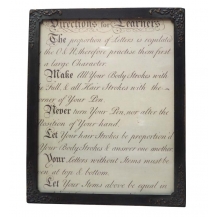 Directions for Learners
The proportion of Letters is regulated
the O & N, therefore practise them first
a large Character
Make All Your Body Strokes with
the Full, & all Hair Strokes with the
corner of Your Pen
Never turn Your Pen, nor alter the
Position of Your hand.
Let Your hair Strokes be proportion'd
Your Body Strokes & answer one another
Your Letters without Stems must be
even at top & bottom.
Let Your Stems above be equal in